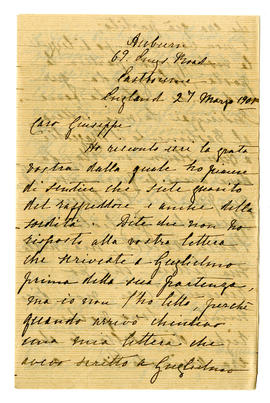 Auburn
69 Kings Road
Eastbourne
England 27 Marzo
Caro Giuseppe
Ho ricevuto ieri la grata
vostra dalla quale ho
di sentire che siete guarito
del raffreddore e anche della
sordità. Dite che non ho
risposto alla vostra lettera
che scrivete a Guglielmo
prima della sua partenza,
ma io non l'ho letta, perché
quando arrivò
una mia lettera che
avevo scritto a Guglielmo